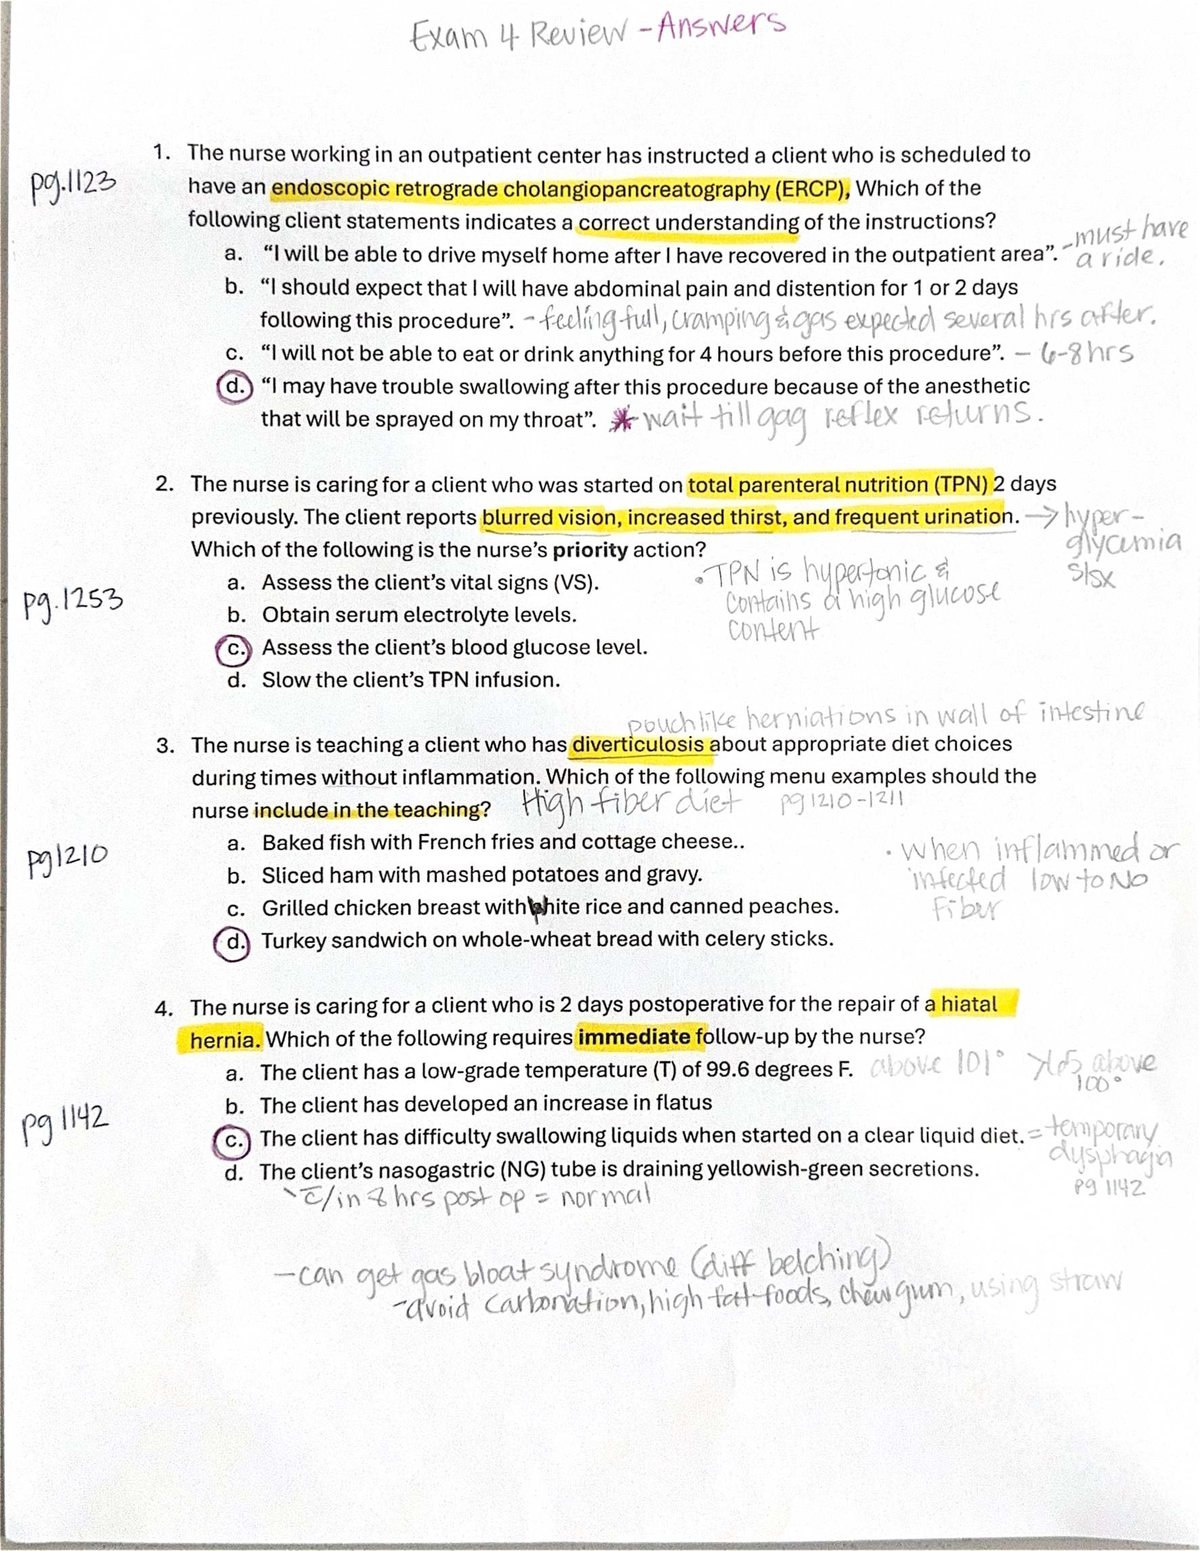 Exam 4 Review - Answers
pg.1123
1. The nurse working in an outpatient center has instructed a client who is scheduled to
have an endoscopic retrograde cholangiopancreatography (ERCP), Which of the
following client statements indicates a correct understanding of the instructions?
a. "I will be able to drive myself home after I have recovered in the outpatient area". - must have
a ride.
b. "I should expect that I will have abdominal pain and distention for 1 or 2 days
following this procedure". - feeling full, cramping & gas expected several hrs after.
c. "I will not be able to eat or drink anything for 4 hours before this procedure". - 6-8 hrs
d. "I may have trouble swallowing after this procedure because of the anesthetic
that will be sprayed on my throat". * wait till gag reflex returns.
2. The nurse is caring for a client who was started on total parenteral nutrition (TPN) 2 days
previously. The client reports blurred vision, increased thirst, and frequent urination. → hyper-
glycemia
s/sx
Which of the following is the nurse's priority action?
pg.1253
a. Assess the client's vital signs (VS).
• TPN is hypertonic &
contains a high glucose
content
b. Obtain serum electrolyte levels.
c. Assess the client's blood glucose level.
d. Slow the client's TPN infusion.
pouchlike herniations in wall of intestine
3. The nurse is teaching a client who has diverticulosis about appropriate diet choices
during times without inflammation. Which of the following menu examples should the
nurse include in the teaching? High fiber diet pg 1210-1211
pg 1210
a. Baked fish with French fries and cottage cheese..
• when inflammed or
infected low to No
Fiber
b. Sliced ham with mashed potatoes and gravy.
c. Grilled chicken breast with white rice and canned peaches.
d. Turkey sandwich on whole-wheat bread with celery sticks.
4. The nurse is caring for a client who is 2 days postoperative for the repair of a hiatal
hernia. Which of the following requires immediate follow-up by the nurse?
a. The client has a low-grade temperature (T) of 99.6 degrees F. above 101° above
100°
b. The client has developed an increase in flatus
pg 1142
c. The client has difficulty swallowing liquids when started on a clear liquid diet. = temporary
dysphagia
pg 1142
d. The client's nasogastric (NG) tube is draining yellowish-green secretions.
c̄/in 8 hrs post op = normal
- can get gas bloat syndrome (diff belching)
- avoid carbonation, high fat foods, chew gum, using straw